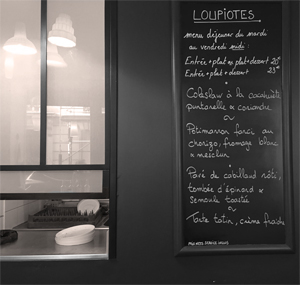 LOUPIOTES
menu déjeuner du mardi
au vendredi midi :
Entrée + plat ou plat + dessert 20€
Entrée + plat + dessert 25€
Coleslaw à la cacahuète
puntarelle & coriandre
~
Potimarron farci au
chorizo, fromage blanc
& mesclun
~
Pavé de cabillaud rôti,
tombée d'épinard &
semoule toastée
~
Tarte tatin, crème fraîche
PRIX NETS SERVICE INCLUS